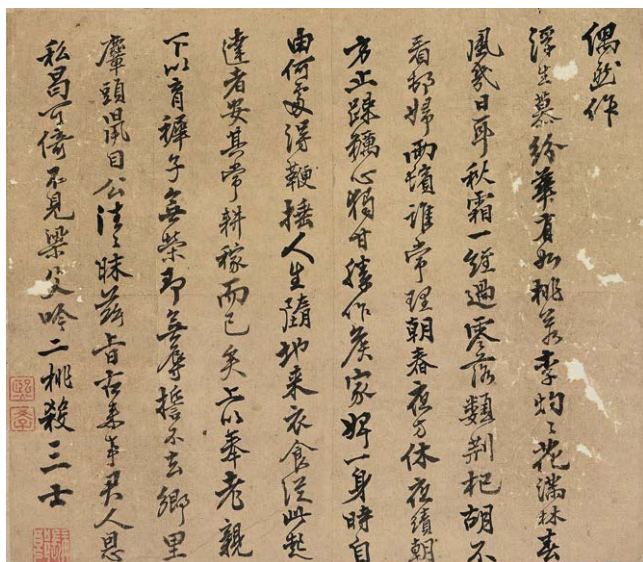 偶然作
浮生慕紛華有如桃若李灼灼花滿林春
風幾日耳秋霜一經過零落類荊杞胡不
看婦兩鬢誰常理朝舂夜方休夜績朝
方止疎糲心獨甘勝作侯家婢一身時自
由何處得鞭捶人生墮地来衣食從此起
達者安其常耕稼而已矣上以奉老親
下以育穉子無榮即無辱誓不去鄉里
麞頭鼠目公昧茲旨古来事君人恩
私曷可倚不見梁父吟二桃殺三士